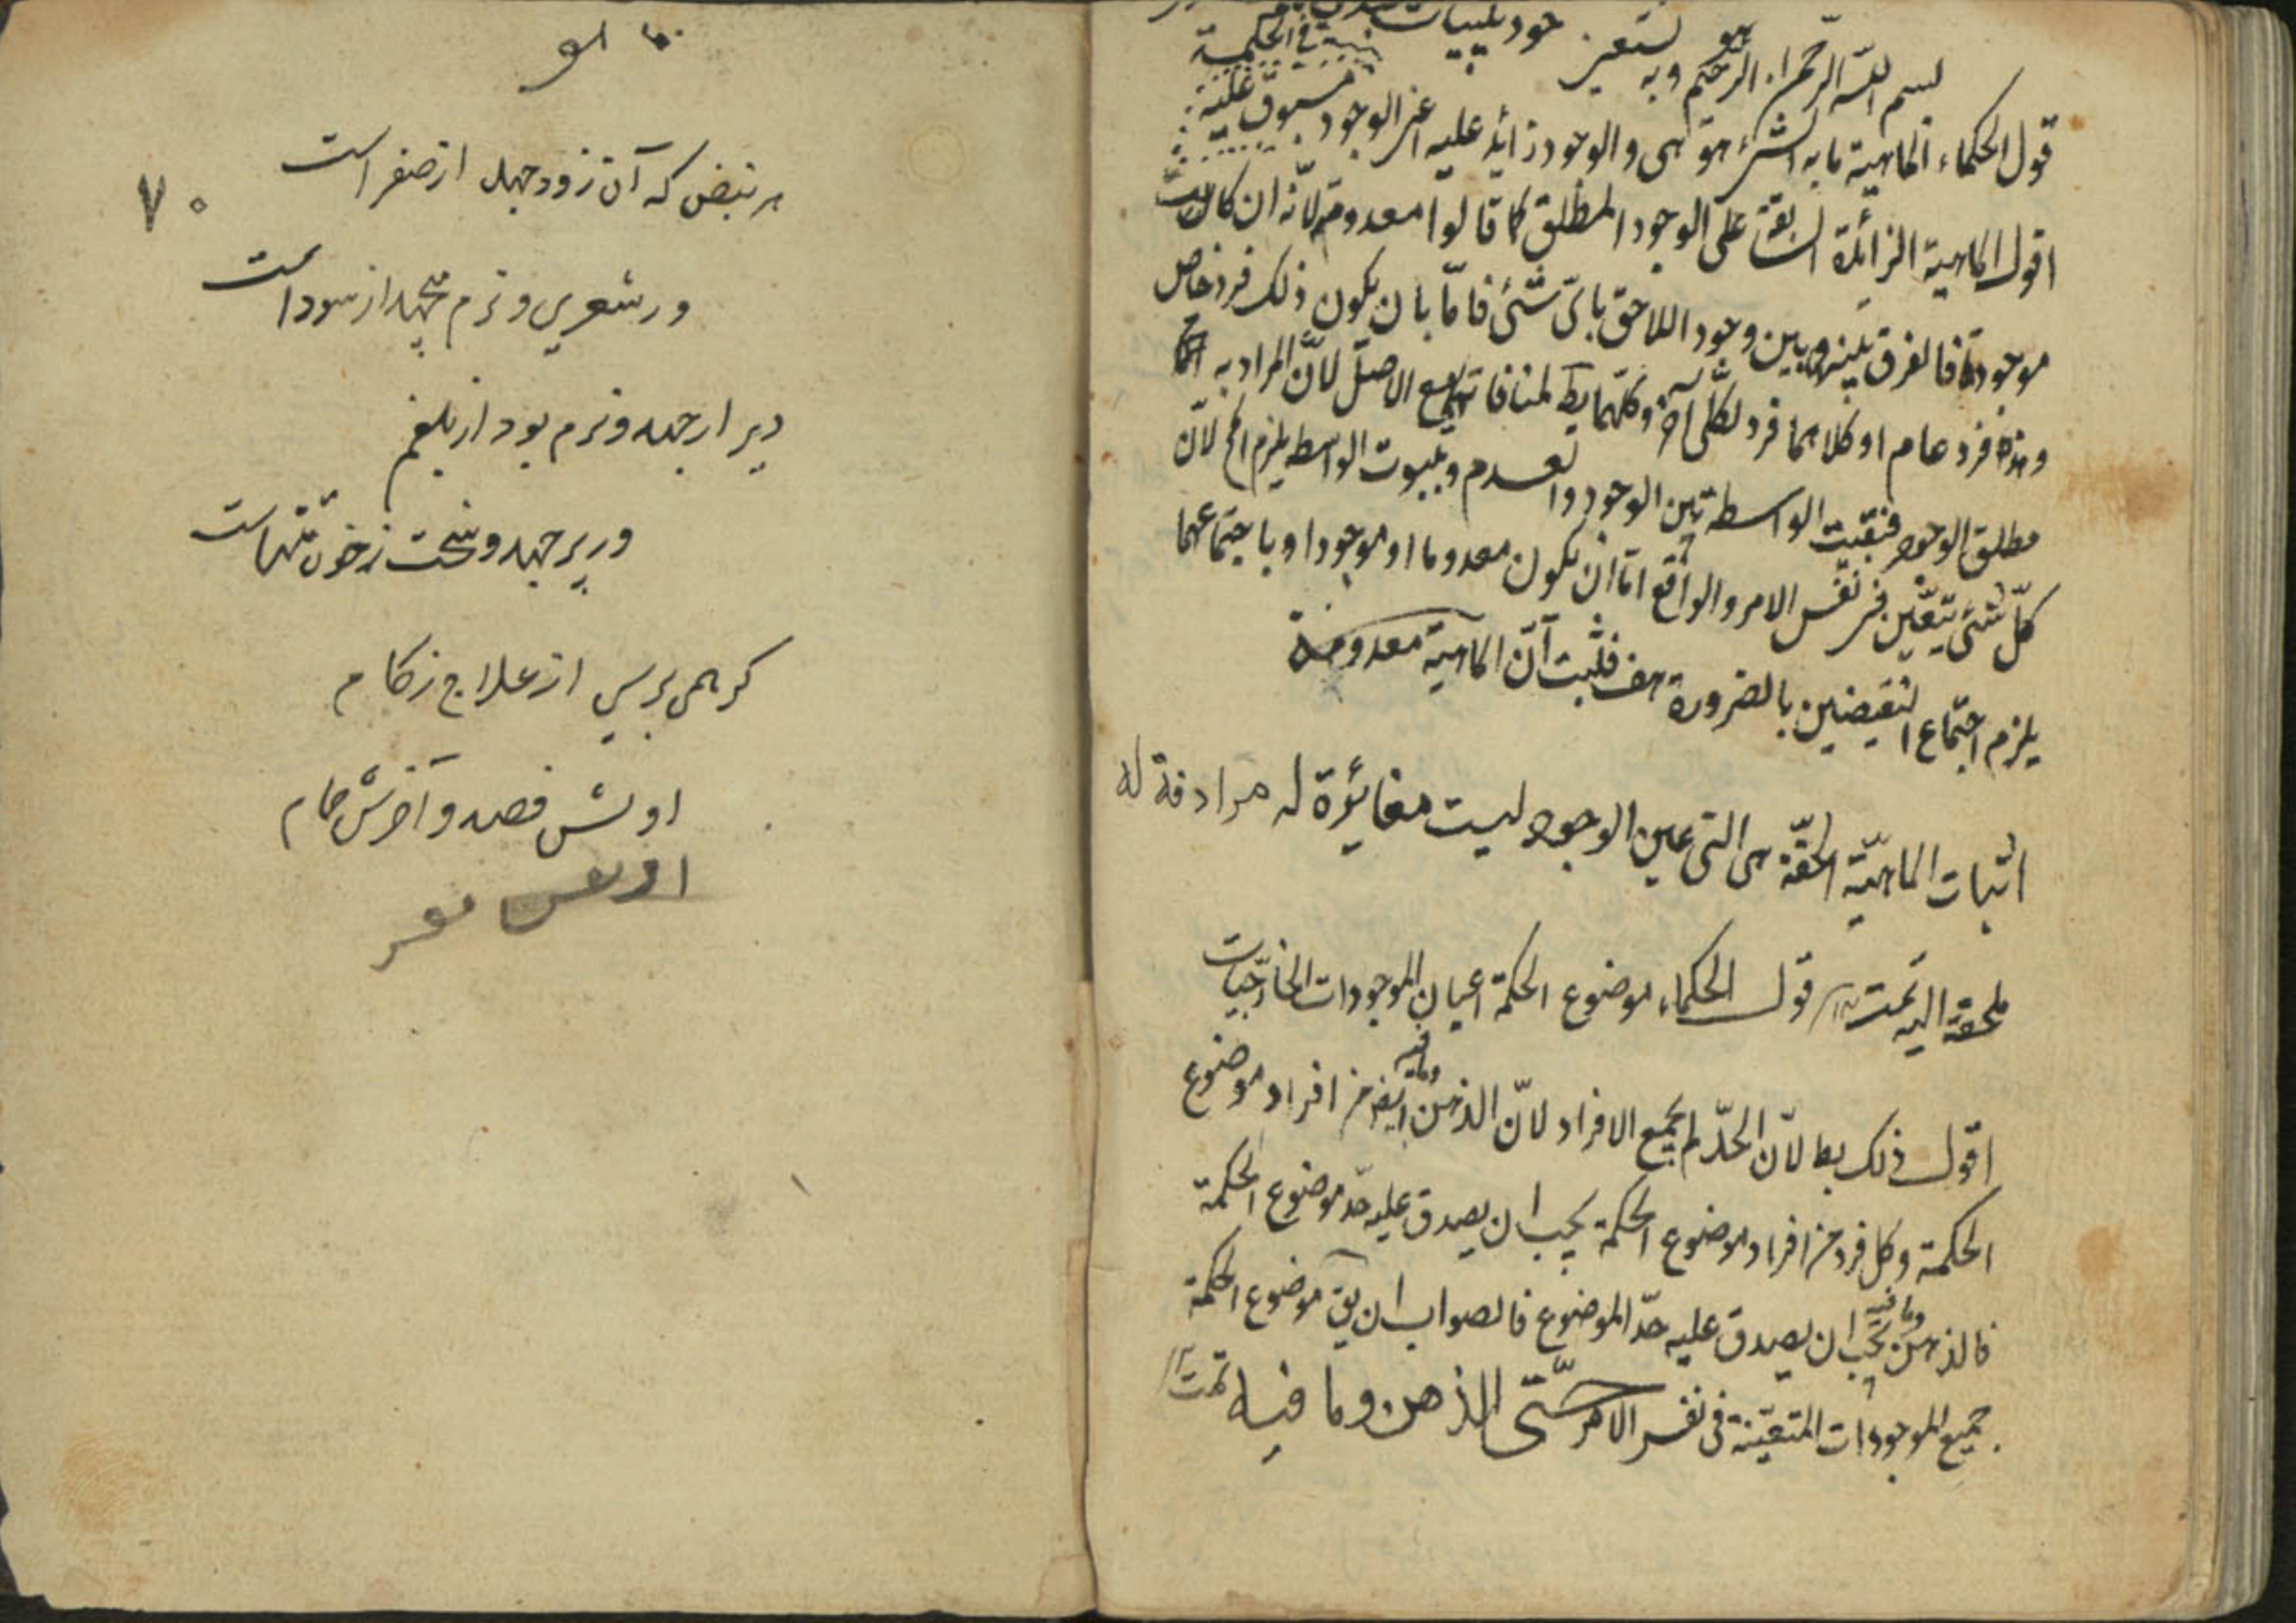 بسم الله الرحمن الرحيم وبه نستعين
قول الحكماء الماهية ما به الشئ هو هى والوجود زائد عليه اعنى الوجود مسبوق عليه
اقول الماهية الزائدة السابقة على الوجود المطلق كما قالوا معدومة لانّه ان كان
موجودة فالفرق بينه وبين وجود اللاحق باىّ شئى فامّا بان يكون ذلك فرد خاص
وهذه فرد عام او كلاهما فرد لكلى آخر وكلّهما بط لمنافاته مع الاصل لانّ المراد به
مطلق الوجود فبقيت الواسطة بين الوجود والعدم وبثبوت الواسطه يلزم لانّ
كلّ شئى يتعيّن فى نفس الامر والواقع امّا ان يكون معدوما او موجودا وباجتماعهما
يلزم اجتماع النقيضين بالضرورة هف فثبت انّ الماهية معدومة
اثبات الماهيّة الحقّة هى التى عين الوجود ليست مغائرة له مرادفة له
ملحقة اليه تمت قول الحكماء موضوع الحكمة اعيان الموجودات الخارجيات
اقول ذلك بط لانّ الحدّ لم يجمع الافراد لانّ الذهن وما فيه ايضا من افراد موضوع
الحكمة وكل فرد من افراد موضوع الحكمة يجب ان يصدق عليه حدّ موضوع الحكمة
فالذهن وما فيه يجب ان يصدق عليه حدّ الموضوع فالصواب ان يق موضوع الحكمة
جميع الموجودات المتعيّنة فى نفس الامر حتّى الذهن وما فيه تمت
هر نبض كه آن زود جهد از صفراست
٧٠
ور شعرى و نرم مى جهد از سوداست
دير ار جهد و نرم بود از بلغم
ور پر جهد و سخت ز خون تنهاست
كر همى پرسى از علاج زكام
اولش فصد و آخرش حمام